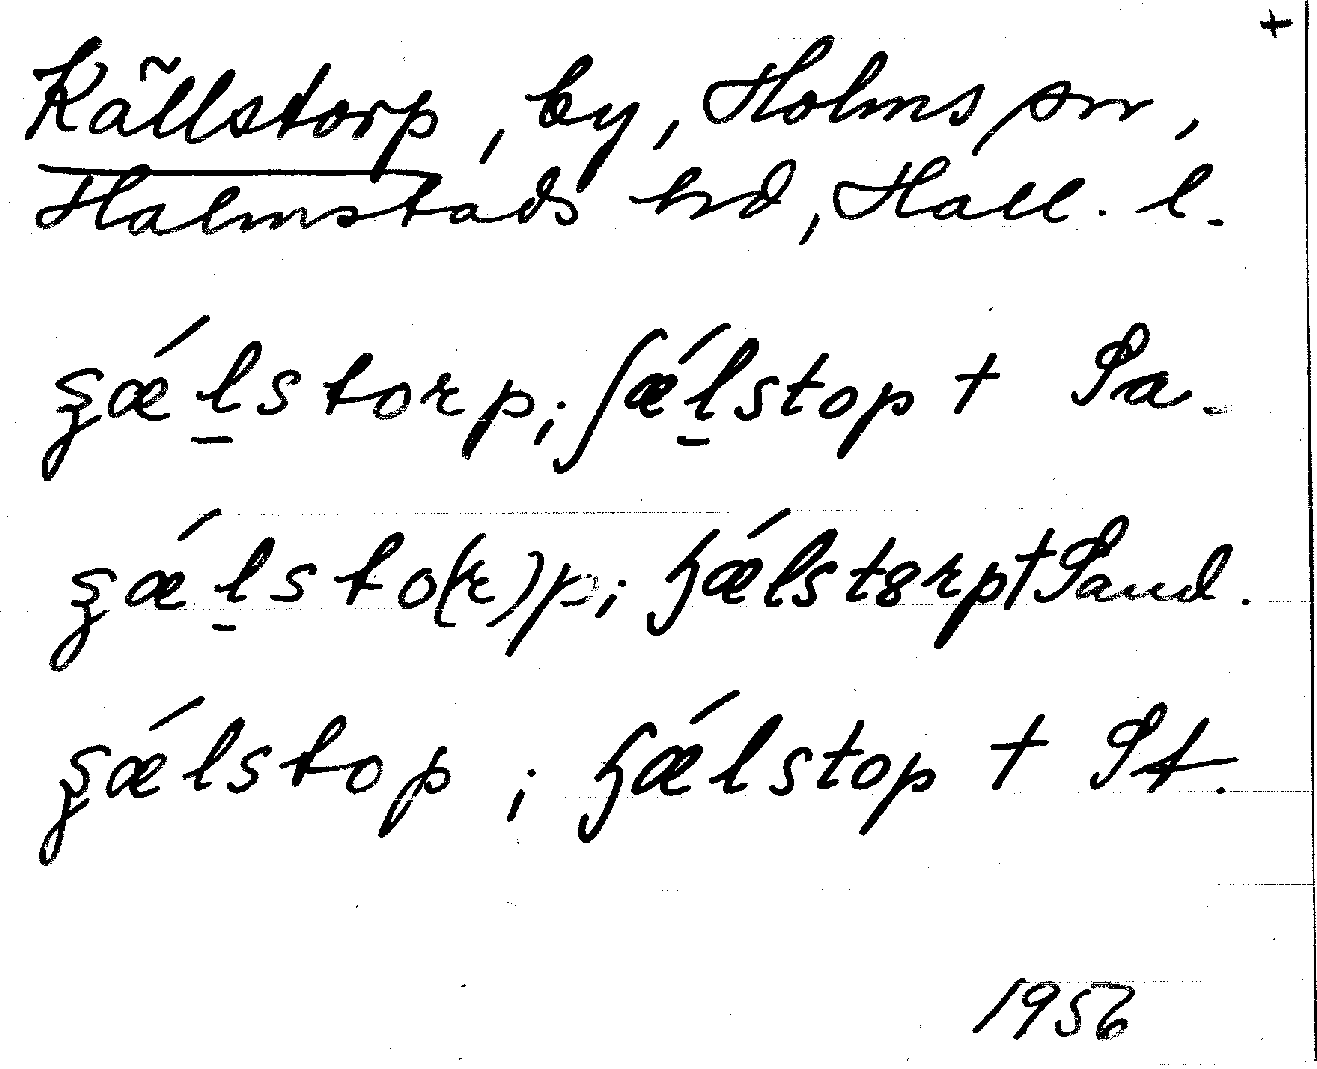 +
Källstorp, by, Holms sn,
Halmstads hd, Hall. l.
ʂǽl̲storp; ʃǽl̲stop † Pa.
ʂǽl̲sto(r)p; ɧǽlstɞrp † Paud.
ʂǽlstop; ɧǽlstop † Pt.
1956